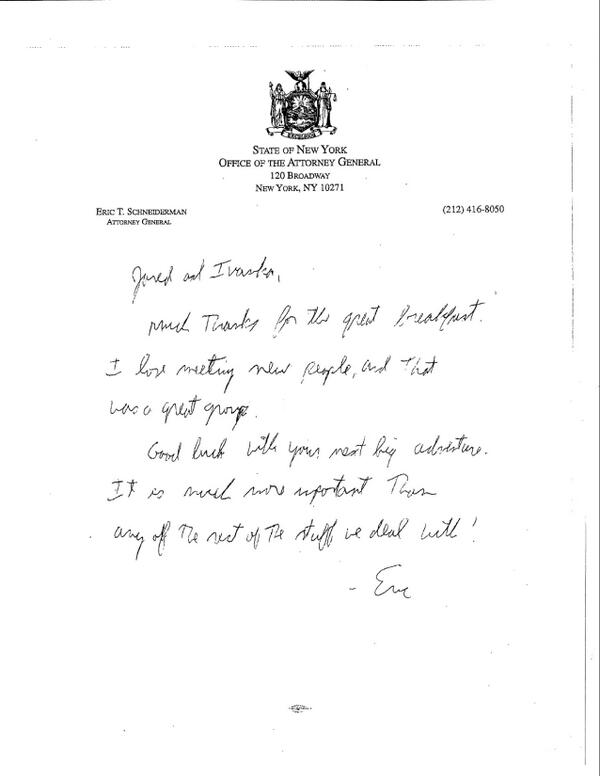 EXCELSIOR
STATE OF NEW YORK
OFFICE OF THE ATTORNEY GENERAL
120 BROADWAY
NEW YORK, NY 10271
ERIC T. SCHNEIDERMAN
ATTORNEY GENERAL
(212) 416-8050
Jared and Ivanka,
Much Thanks for the great breakfast.
I love meeting new people, and that
was a great group.
Good luck with your next big adventure.
It is much more important Than
any off The rest of The stuff we deal with!
- Eric